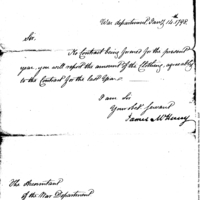 War department Jan'y 14th 1798
Sir.
No Contract being formed for the present
year, you will report the amount of the Clothing, agreeably
to the Contract for the last Year.
I am Sir
Your obt Servant
James McHenry
The Accountant
of the War Department